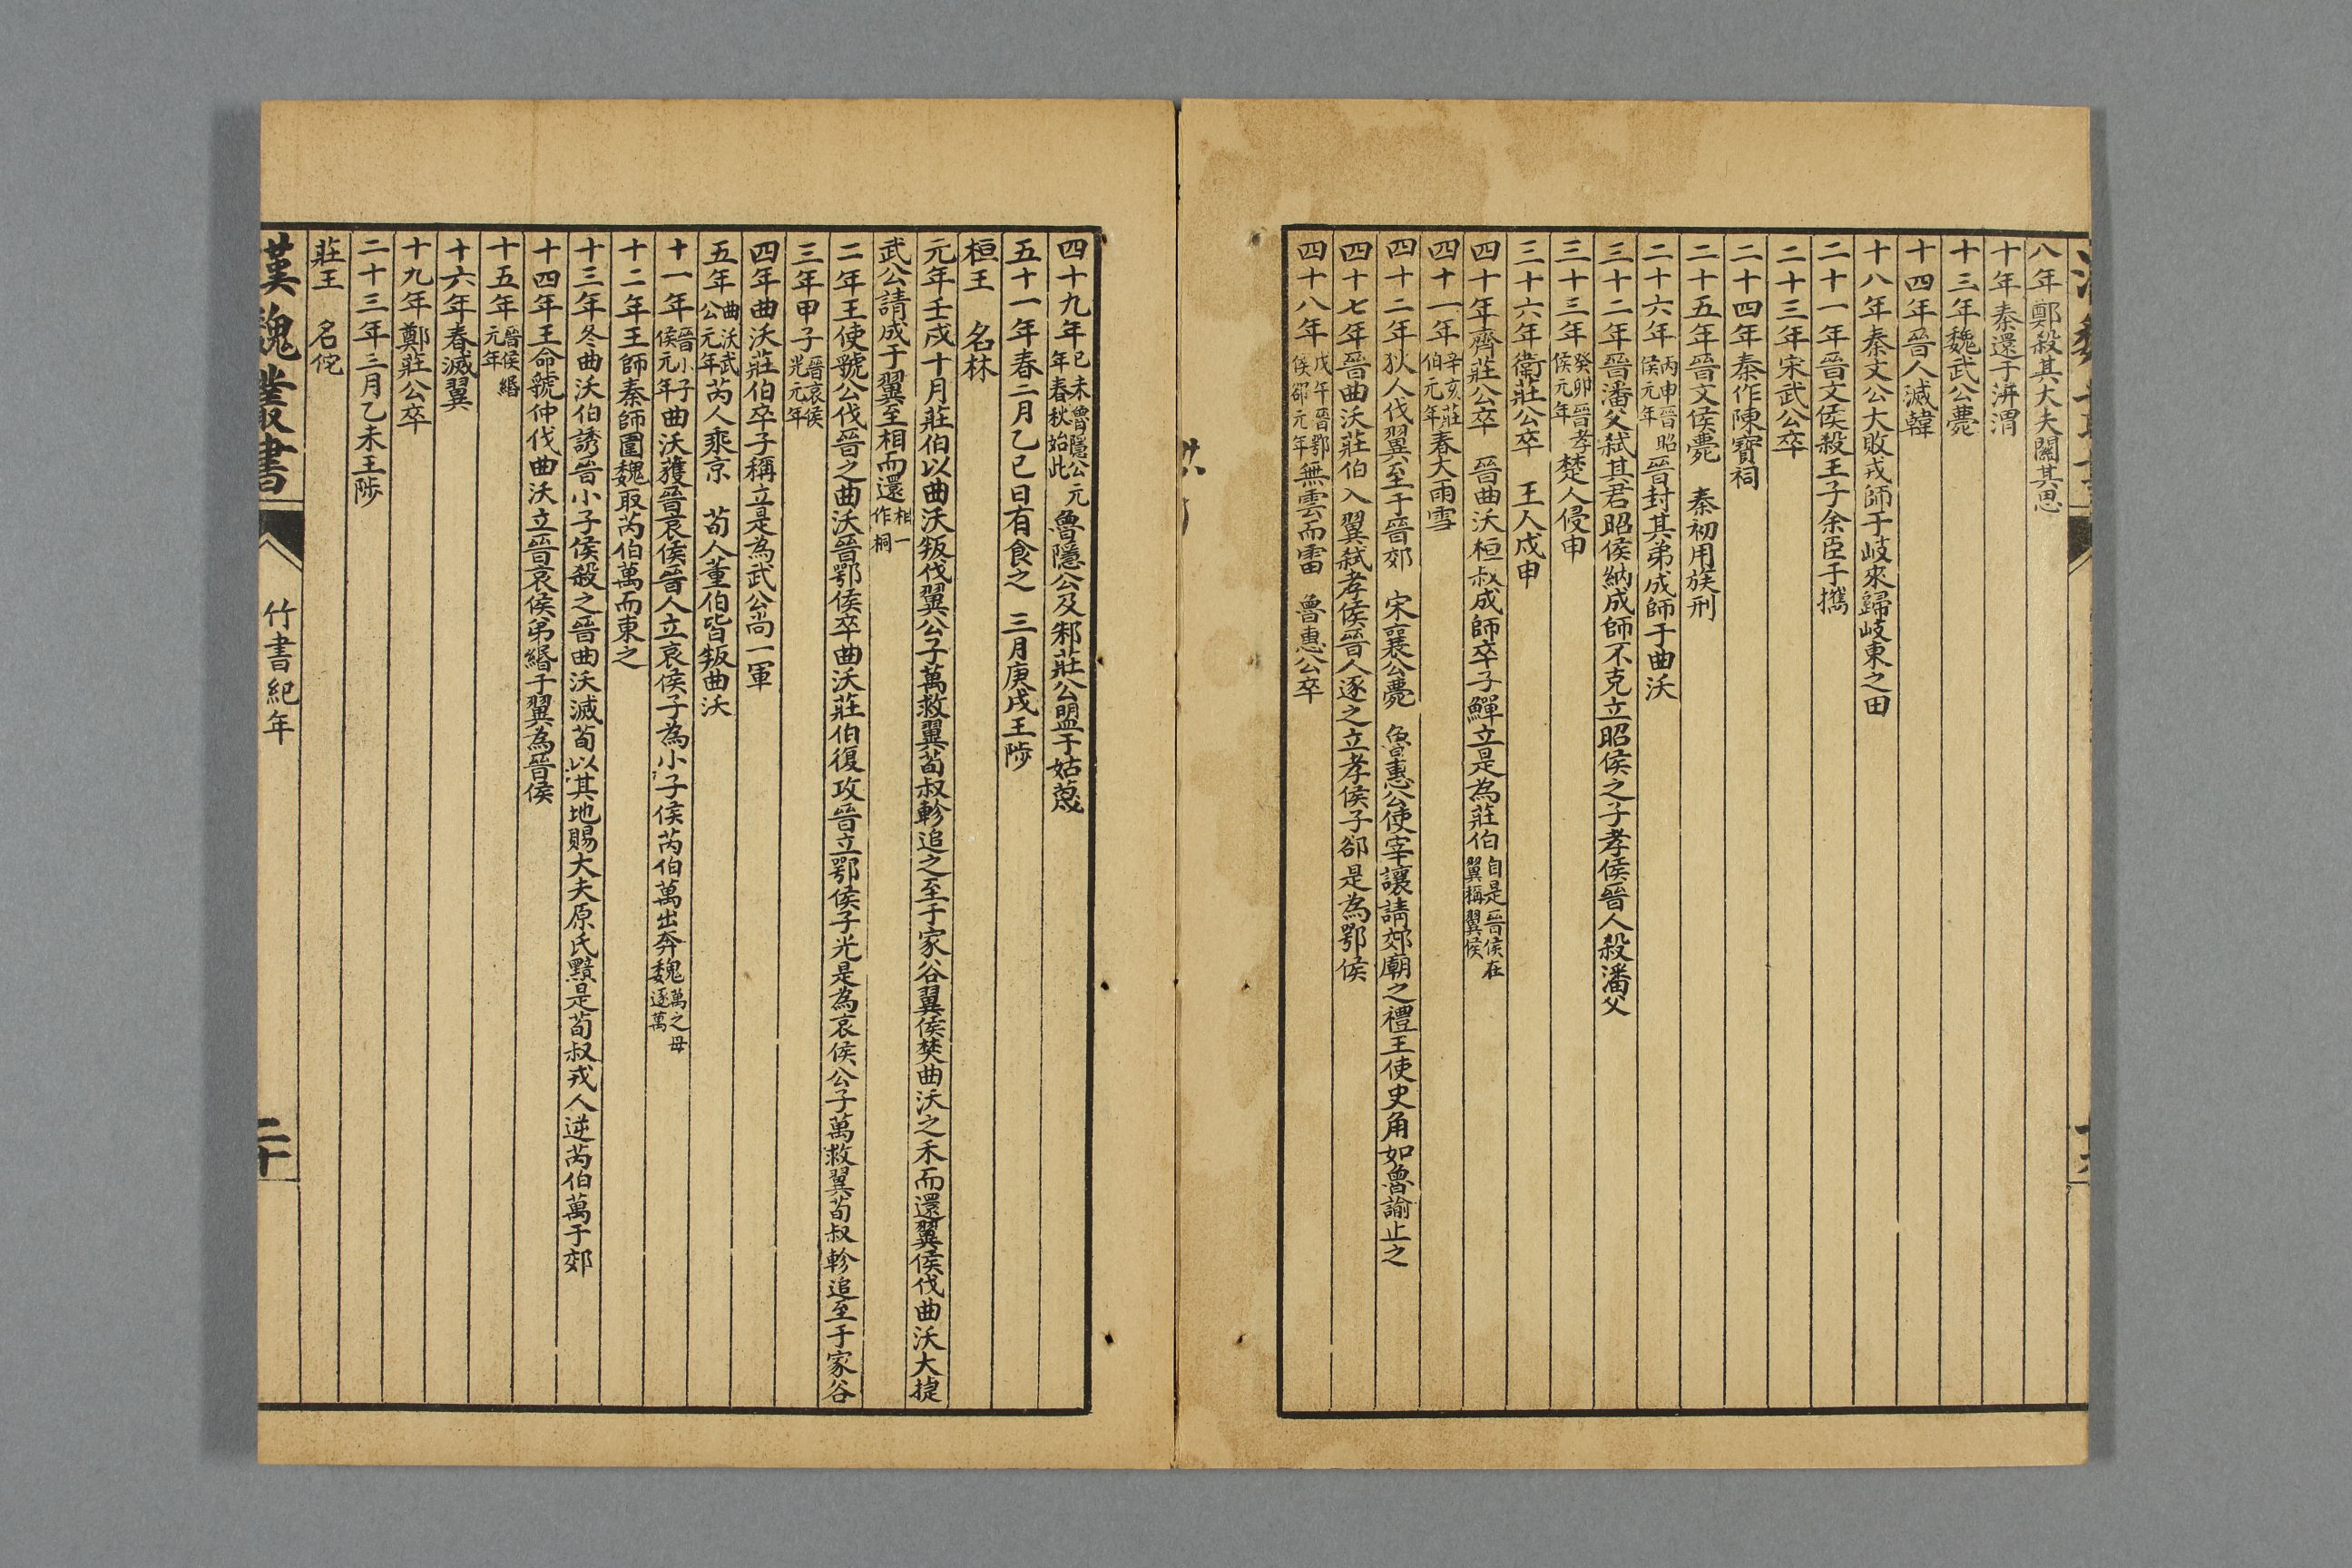 八年鄭殺其大夫關其思
十年秦還于汧渭
十三年魏武公薨
十四年晉人滅韓
十八年秦文公大敗戎師于岐來歸岐東之田
二十一年晉文侯殺王子余臣于攜
二十三年宋武公卒
二十四年秦作陳寶祠
二十五年晉文侯薨 秦初用族刑
二十六年丙申晉昭侯元年晉封其弟成師于曲沃
三十二年晉潘父弒其君昭侯納成師不克立昭侯之子孝侯晉人殺潘父
三十三年癸卯晉孝侯元年楚人侵申
三十六年衛莊公卒 王人戍申
四十年齊莊公卒 晉曲沃桓叔成師卒子鱓立是為莊伯自是晉侯在翼稱翼侯
四十一年辛亥莊伯元年春大雨雪
四十二年狄人伐翼至于晉郊 宋襄公薨 魯惠公使宰讓請郊廟之禮王使史角如魯諭止之
四十七年晉曲沃莊伯入翼弒孝侯晉人逐之立孝侯子郤是為鄂侯
四十八年戊午晉鄂侯郤元年無雲而雷 魯惠公卒
四十九年己未魯隱公元年春秋始此魯隱公及邾莊公盟于姑蔑
五十一年春二月乙巳日有食之 三月庚戌王陟
桓王 名林
元年壬戌十月莊伯以曲沃叛伐翼公子萬救翼荀叔軫追之至于家谷翼侯焚曲沃之禾而還翼侯伐曲沃大捷
武公請成于翼至相而還相一作桐
二年王使虢公伐晉之曲沃晉鄂侯卒曲沃莊伯復攻晉立鄂侯子光是為哀侯公子萬救翼荀叔軫追至于家谷
三年甲子晉哀侯光元年
四年曲沃莊伯卒子稱立是為武公尚一軍
五年曲沃武公元年芮人乘京 荀人董伯皆叛曲沃
十一年晉小子侯元年曲沃獲晉哀侯晉人立哀侯子為小子侯芮伯萬出奔魏萬之母逐萬
十二年王師秦師圍魏取芮伯萬而東之
十三年冬曲沃伯誘晉小子侯殺之晉曲沃滅荀以其地賜大夫原氏黯是荀叔戎人逆芮伯萬于郊
十四年王命虢仲伐曲沃立晉哀侯弟緡于翼為晉侯
十五年晉侯緡元年
十六年春滅翼
十九年鄭莊公卒
二十三年三月乙未王陟
莊王 名佗
漢魏叢書
竹書紀年
二十